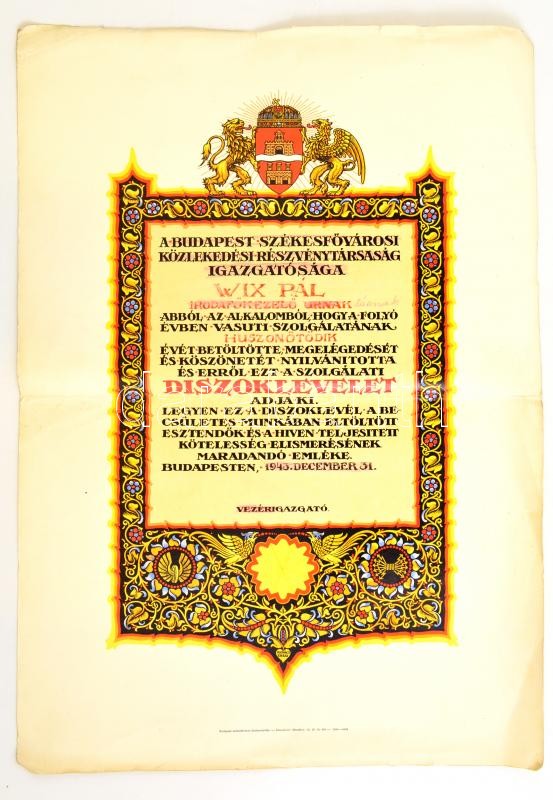 A·BUDAPEST·SZÉKESFŐVÁROSI
KÖZLEKEDÉSI·RÉSZVÉNYTÁRSASÁG
IGAZGATÓSÁGA
WIX PÁL
IRODAFŐKEZELŐ URNAK
ABBÓL·AZ·ALKALOMBÓL·HOGY·A·FOLYÓ
ÉVBEN·VASUTI·SZOLGÁLATÁNAK
HUSZONÖTÖDIK
ÉVÉT·BETÖLTÖTTE, MEGELÉGEDÉSÉT
ÉS·KÖSZÖNETÉT·NYILVÁNITOTTA
ÉS·ERRŐL·EZT·A·SZOLGÁLATI
DISZOKLEVELET
ADJA·KI.
LEGYEN·EZ·A·DISZOKLEVÉL·A·BE-
CSÜLETES·MUNKÁBAN·ELTÖLTÖTT
ESZTENDŐK·ÉS·A·HIVEN·TELJESITETT
KÖTELESSÉG·ELISMERÉSÉNEK
MARADANDÓ·EMLÉKE.
BUDAPESTEN, 1943. DECEMBER 31.
VEZÉRIGAZGATÓ.